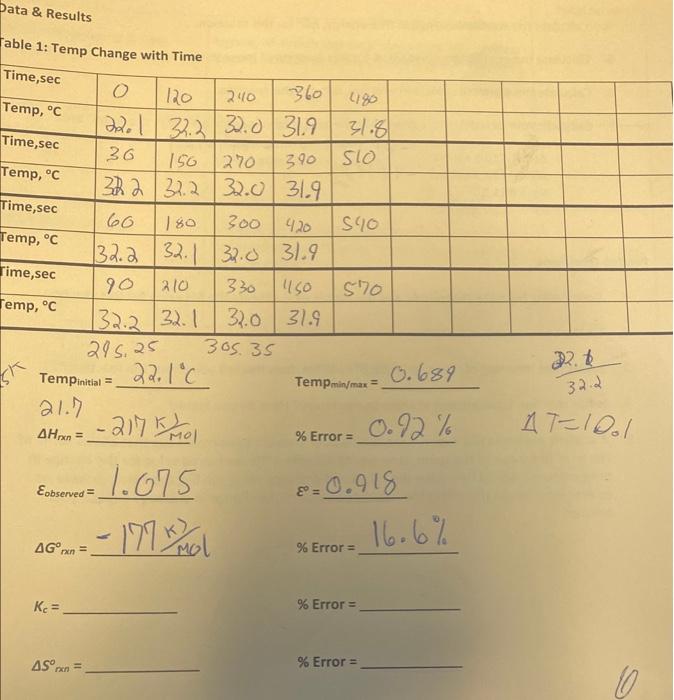 Data & Results
Table 1: Temp Change with Time
Time,sec 0 120 240 360 480
Temp, °C 22.1 32.2 32.0 31.9 31.8
Time,sec 30 150 270 390 510
Temp, °C 32.2 32.2 32.0 31.9
Time,sec 60 180 300 420 540
Temp, °C 32.2 32.1 32.0 31.9
Time,sec 90 210 330 450 570
Temp, °C 32.2 32.1 32.0 31.9
295.25 305.35
Tempinitial = 22.1°C Tempmin/max = 0.689
32.2
21.7
ΔHrxn = -217 KJ/mol % Error = 0.92 % ΔT=10.1
Ɛobserved = 1.075 Ɛ° = 0.918
ΔG°rxn = -177 KJ/mol % Error = 16.6%
Kc = % Error =
ΔS°rxn = % Error =